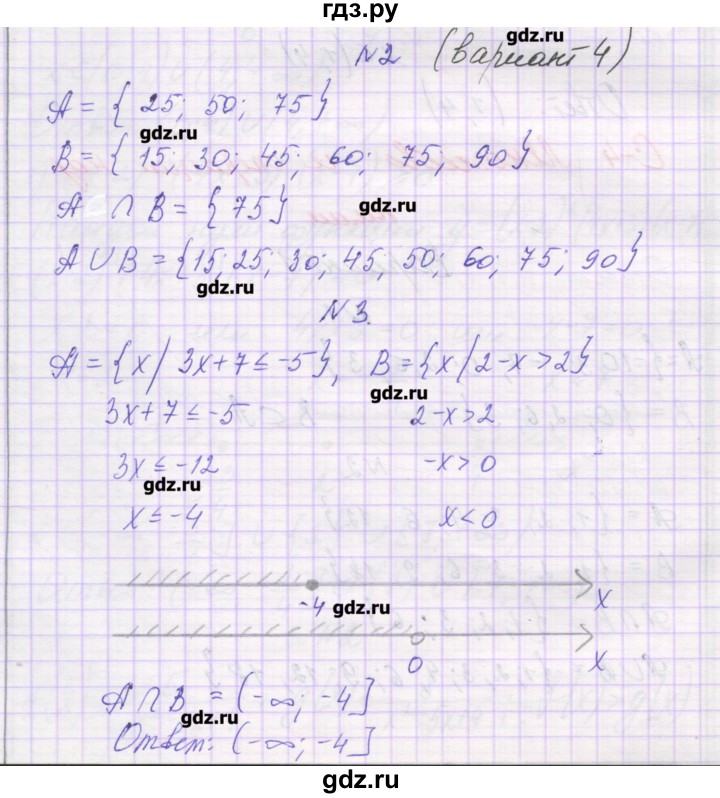 гдз.ру
gdz.ru
N2 (вариант 4)
A = { 25; 50; 75}
gdz.ru
B = { 15; 30; 45; 60; 75; 90}
A ∩ B = { 75}
gdz.ru
A ∪ B = {15; 25; 30; 45; 50; 60; 75; 90}
gdz.ru
N 3.
A = {x/ 3x+7 ≤ -5}, B = {x/2-x>2}
gdz.ru
3x+7 ≤ -5 2-x>2
3x ≤ -12 -x > 0
gdz.ru
x ≤ -4 x < 0
-4 gdz.ru x
0 x
A ∩ B = (-∞; -4]
gdz.ru
Ответ: (-∞; -4]
gdz.ru